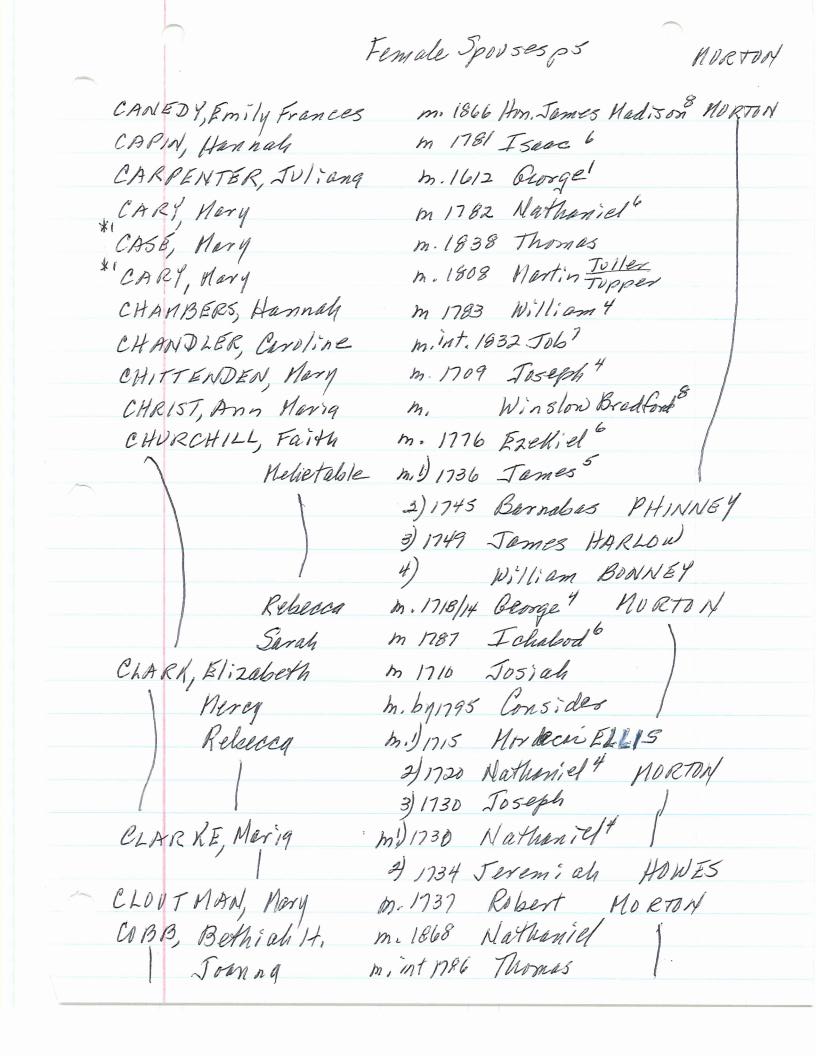 Female Spouses p5 MORTON
CANEDY, Emily Frances m. 1866 Hon. James Madison⁸ MORTON
CAPIN, Hannah m 1781 Isaac ⁶
CARPENTER, Juliana m. 1612 George¹
CARY, Mary m 1782 Nathaniel⁶
*¹ CASE, Mary m. 1838 Thomas
*¹ CARY, Mary m. 1808 Martin Tuller/Tupper
CHAMBERS, Hannah m 1783 William ⁴
CHANDLER, Caroline m. int. 1832 Job⁷
CHITTENDEN, Mary m. 1709 Joseph ⁴
CHRIST, Ann Maria m. Winslow Bradford⁸
CHURCHILL, Faith m. 1776 Ezekiel ⁶
Melietable m. 1) 1736 James ⁵
2) 1745 Barnabas PHINNEY
3) 1749 James HARLOW
4) William BONNEY
Rebecca m. 1718/14 George ⁴ MORTON
Sarah m 1787 Ichabod ⁶
CLARK, Elizabeth m 1710 Josiah
Mercy m. by 1795 Consider
Rebecca m. 1) 1715 Mordecai ELLIS
2) 1720 Nathaniel ⁴ MORTON
3) 1730 Joseph
CLARKE, Maria m 1) 1730 Nathaniel ⁴
2) 1734 Jeremiah HOWES
CLOUTMAN, Mary m. 1737 Robert MORTON
COBB, Bethiah H. m. 1868 Nathaniel
Joanna m. int 1786 Thomas